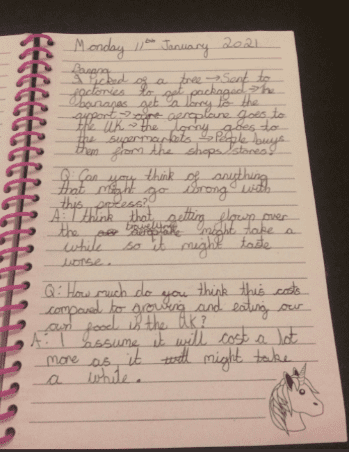 Monday 11th January 2021
Banana
Picked of a tree → Sent to
factories to get packaged → the
bananas get a lorry to the
airport → aeroplane goes to
the UK → the lorry goes to
the supermarkets → People buys
them from the shops/stores
Q: Can you think of anything
that might go wrong with
this process?
A: I think that getting flown over
the might take a
while so it might taste
worse.
Q: How much do you think this costs
compared to growing and eating our
own food in the UK?
A: I assume it will cost a lot
more as it might take
a while.